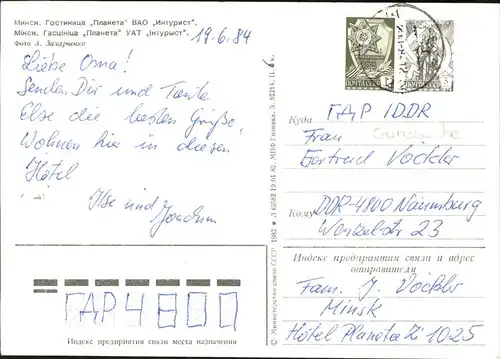 Минск. Гостиница „Планета“ ВАО „Интурист“.
Мінск. Гасцініца „Планета“ УАТ „Інтурыст“.
Фото А. Захарченко
19.6.84
Liebe Oma!
Senden Dir und Tante
Else die besten Grüße,
Wohnen hier in diesem
Hotel
Ilse und
Joachim
© Министерство связи СССР, 1982 З. 82214. Ц. 6 к.
Куда ГДР / DDR
Frau
Gertrud Vockler
Кому DDR-4800 Naumburg
Wenzelstr 23
Индекс предприятия связи и адрес
отправителя
Fam. J. Vöckler
Minsk
Hotel Planeta Zi 1025
ГДР 4800
Индекс предприятия связи места назначения